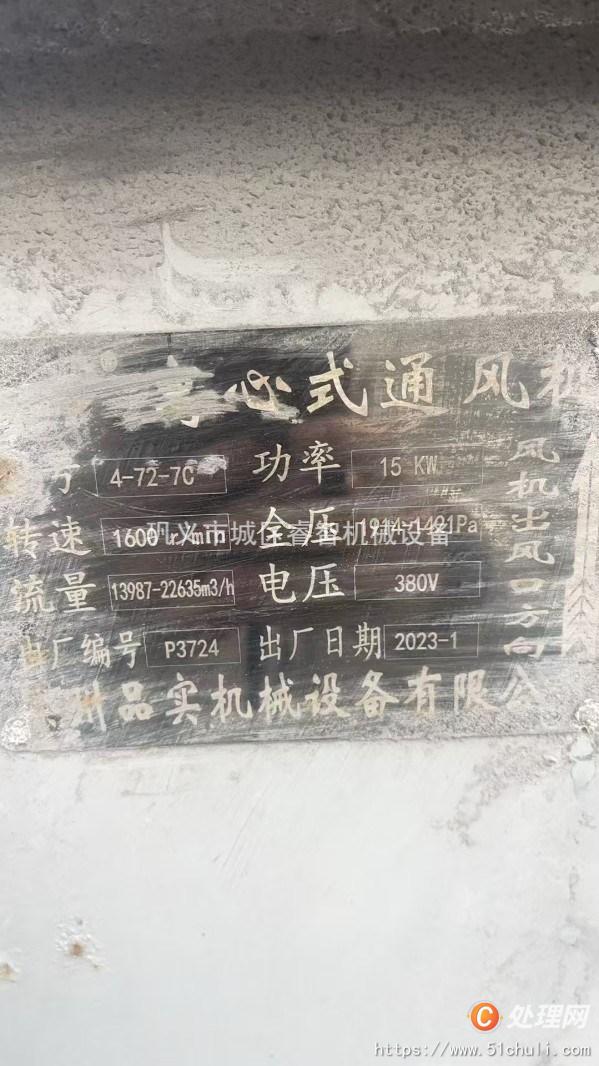 心式通风机
4-72-7C 功率 15 KW
转速 1600 r/min 全压 1914-1491Pa
流量 13987-22635m3/h 电压 380V
出厂编号 P3724 出厂日期 2023-1
州品实机械设备有限公
风机出风口方向
巩义市城仁睿智机械设备
C处理网
https://www.51chuli.com